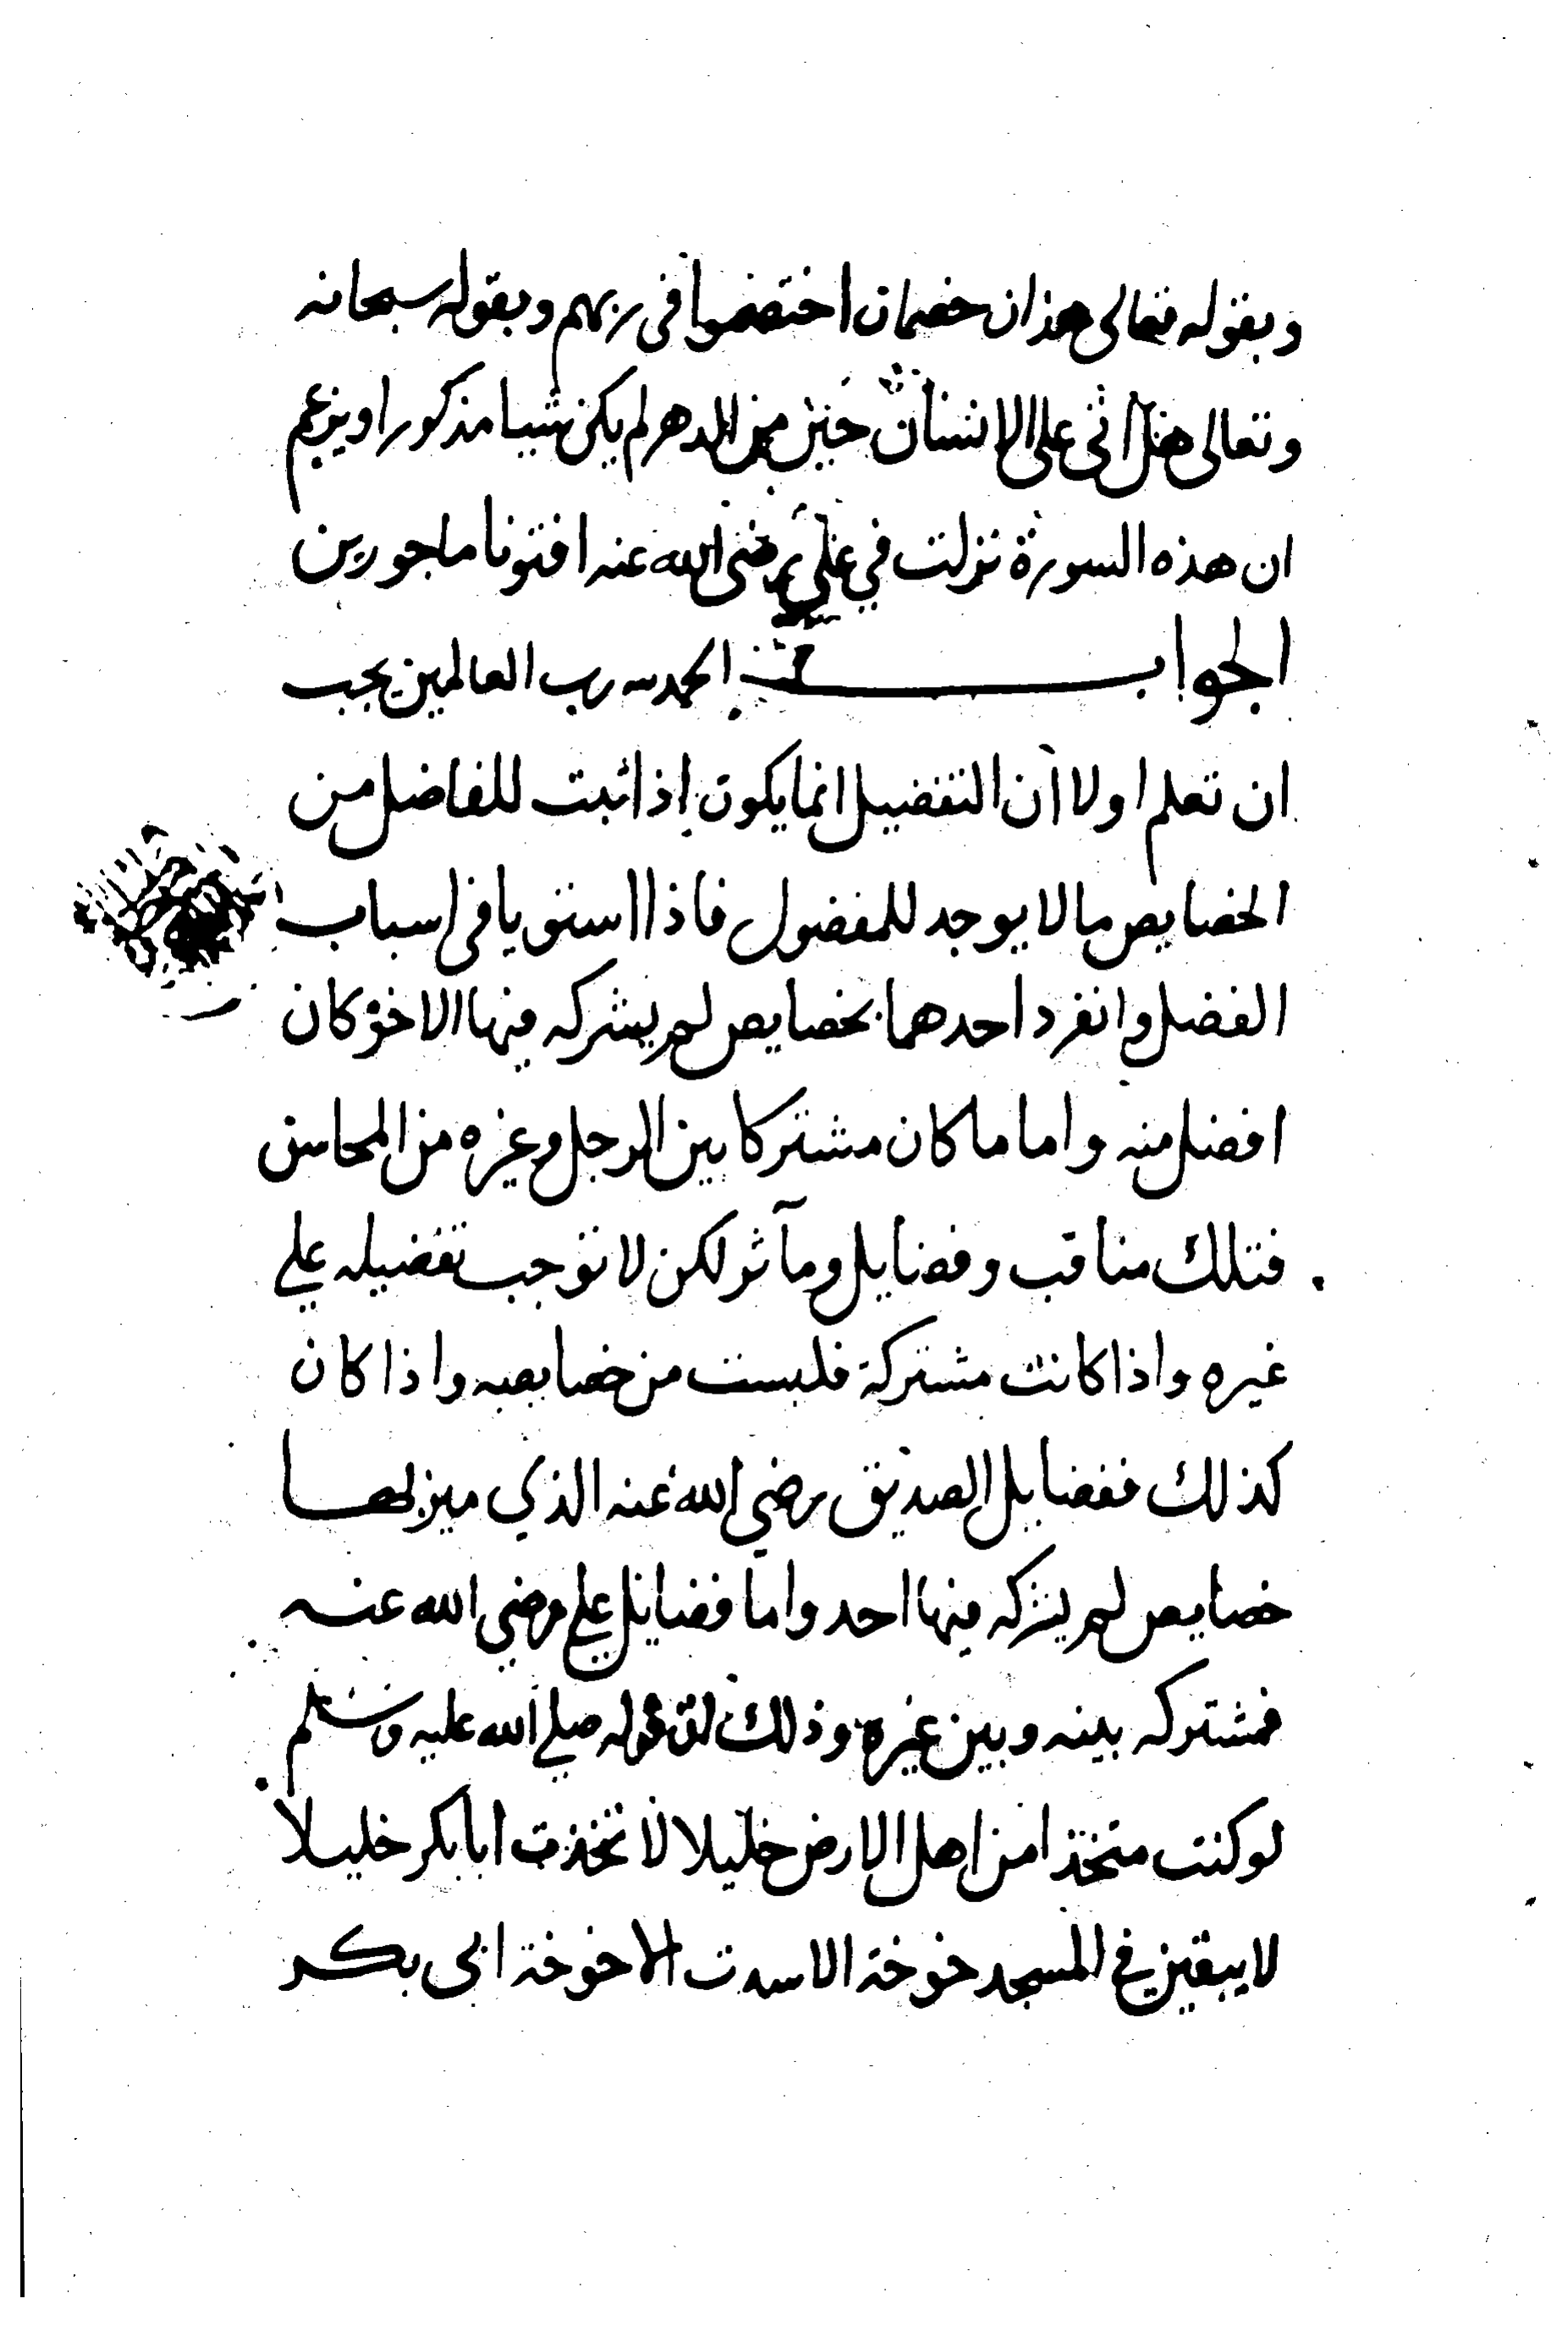 وبقوله تعالى هذان خصمان اختصموا في ربهم وبقوله سبحانه
وتعالى هل اتى على الانسان حين من الدهر لم يكن شيا مذكورا ويزعم
ان هذه السورة نزلت في علي رضي الله عنه افتونا ماجورين
الجواب الحمد لله رب العالمين يجب
ان تعلم اولا ان التفضيل انما يكون اذا ثبت للفاضل من
الخصايص ما لا يوجد للمفضول فاذا استويا في اسباب
الفضل وانفرد احدهما بخصايص لم يشركه فيها الاخر كان
افضل منه واما ما كان مشتركا بين الرجل وغيره من المحاسن
فتلك مناقب وفضايل ومآثر لكن لا توجب تفضيله علي
غيره واذا كانت مشتركة فليست من خصايصه واذا كان
كذلك ففضايل الصديق رضي الله عنه الذي ميز بها
خصايص لم يشركه فيها احد واما فضايل علي رضي الله عنه
فمشتركه بينه وبين غيره وذلك ان قوله صلي الله عليه وسلم
لو كنت متخذا من اهل الارض خليلا لاتخذت ابا بكر خليلا
لا يبقين في المسجد خوخة الا سدت الا خوخة ابي بكر